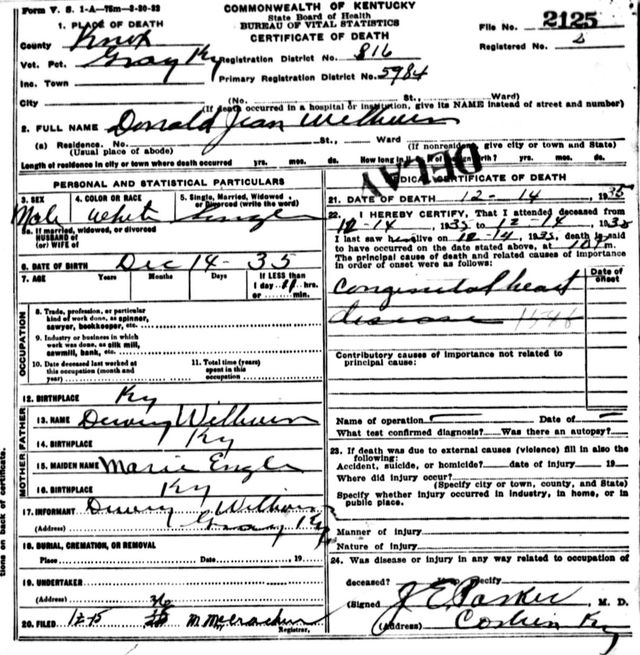 Form V. S. 1-A—75m—3-30-32
COMMONWEALTH OF KENTUCKY
State Board of Health
BUREAU OF VITAL STATISTICS
CERTIFICATE OF DEATH
File No. 2125
Registered No.
1. PLACE OF DEATH
County Knox
Vot. Pct. Gray Ky Registration District No. 816
Inc. Town Primary Registration District No. 5984
City (No. St., Ward)
(If death occurred in a hospital or institution, give its NAME instead of street and number)
2. FULL NAME Donald Jean
(a) Residence. No. St., Ward
(Usual place of abode) (If nonresident give city or town and State)
Length of residence in city or town where death occurred yrs. mos. ds. How long in U. S., if of foreign birth? yrs. mos. ds.
DELAY
PERSONAL AND STATISTICAL PARTICULARS
3. SEX 4. COLOR OR RACE 5. Single, Married, Widowed, or Divorced (write the word)
Male White Single
5a. If married, widowed, or divorced
HUSBAND of
(or) WIFE of
6. DATE OF BIRTH Dec 14 - 35
7. AGE Years Months Days If LESS than
1 day hrs.
or min.
OCCUPATION
8. Trade, profession, or particular
kind of work done, as spinner,
sawyer, bookkeeper, etc.
9. Industry or business in which
work was done, as silk mill,
sawmill, bank, etc.
10. Date deceased last worked at
this occupation (month and
year)
11. Total time (years)
spent in this
occupation
12. BIRTHPLACE Ky
FATHER
13. NAME Dewey
14. BIRTHPLACE Ky
MOTHER
15. MAIDEN NAME Marie Engle
16. BIRTHPLACE Ky
17. INFORMANT Dewey
(Address) Gray Ky
18. BURIAL, CREMATION, OR REMOVAL
Place Date , 19
19. UNDERTAKER
(Address)
20. FILED 12-15 36 M McCracken
Registrar.
MEDICAL CERTIFICATE OF DEATH
21. DATE OF DEATH 12 - 14 , 1935
22. I HEREBY CERTIFY, That I attended deceased from
12-14 , 1935 to 12-14 , 1935
I last saw h alive on 12-14, 1935, death is said
to have occurred on the date stated above, at m.
The principal cause of death and related causes of importance
in order of onset were as follows:
Date of onset
Congenital heart
disease 1546
Contributory causes of importance not related to
principal cause:
Name of operation Date of
What test confirmed diagnosis? Was there an autopsy?
23. If death was due to external causes (violence) fill in also the
following:
Accident, suicide, or homicide? date of injury 19
Where did injury occur?
(Specify city or town, county, and State)
Specify whether injury occurred in industry, in home, or in
public place.
Manner of injury
Nature of injury
24. Was disease or injury in any way related to occupation of
deceased? If so specify
(Signed) J E Parker , M. D.
(Address) Corbin Ky
tions on back of certificate.